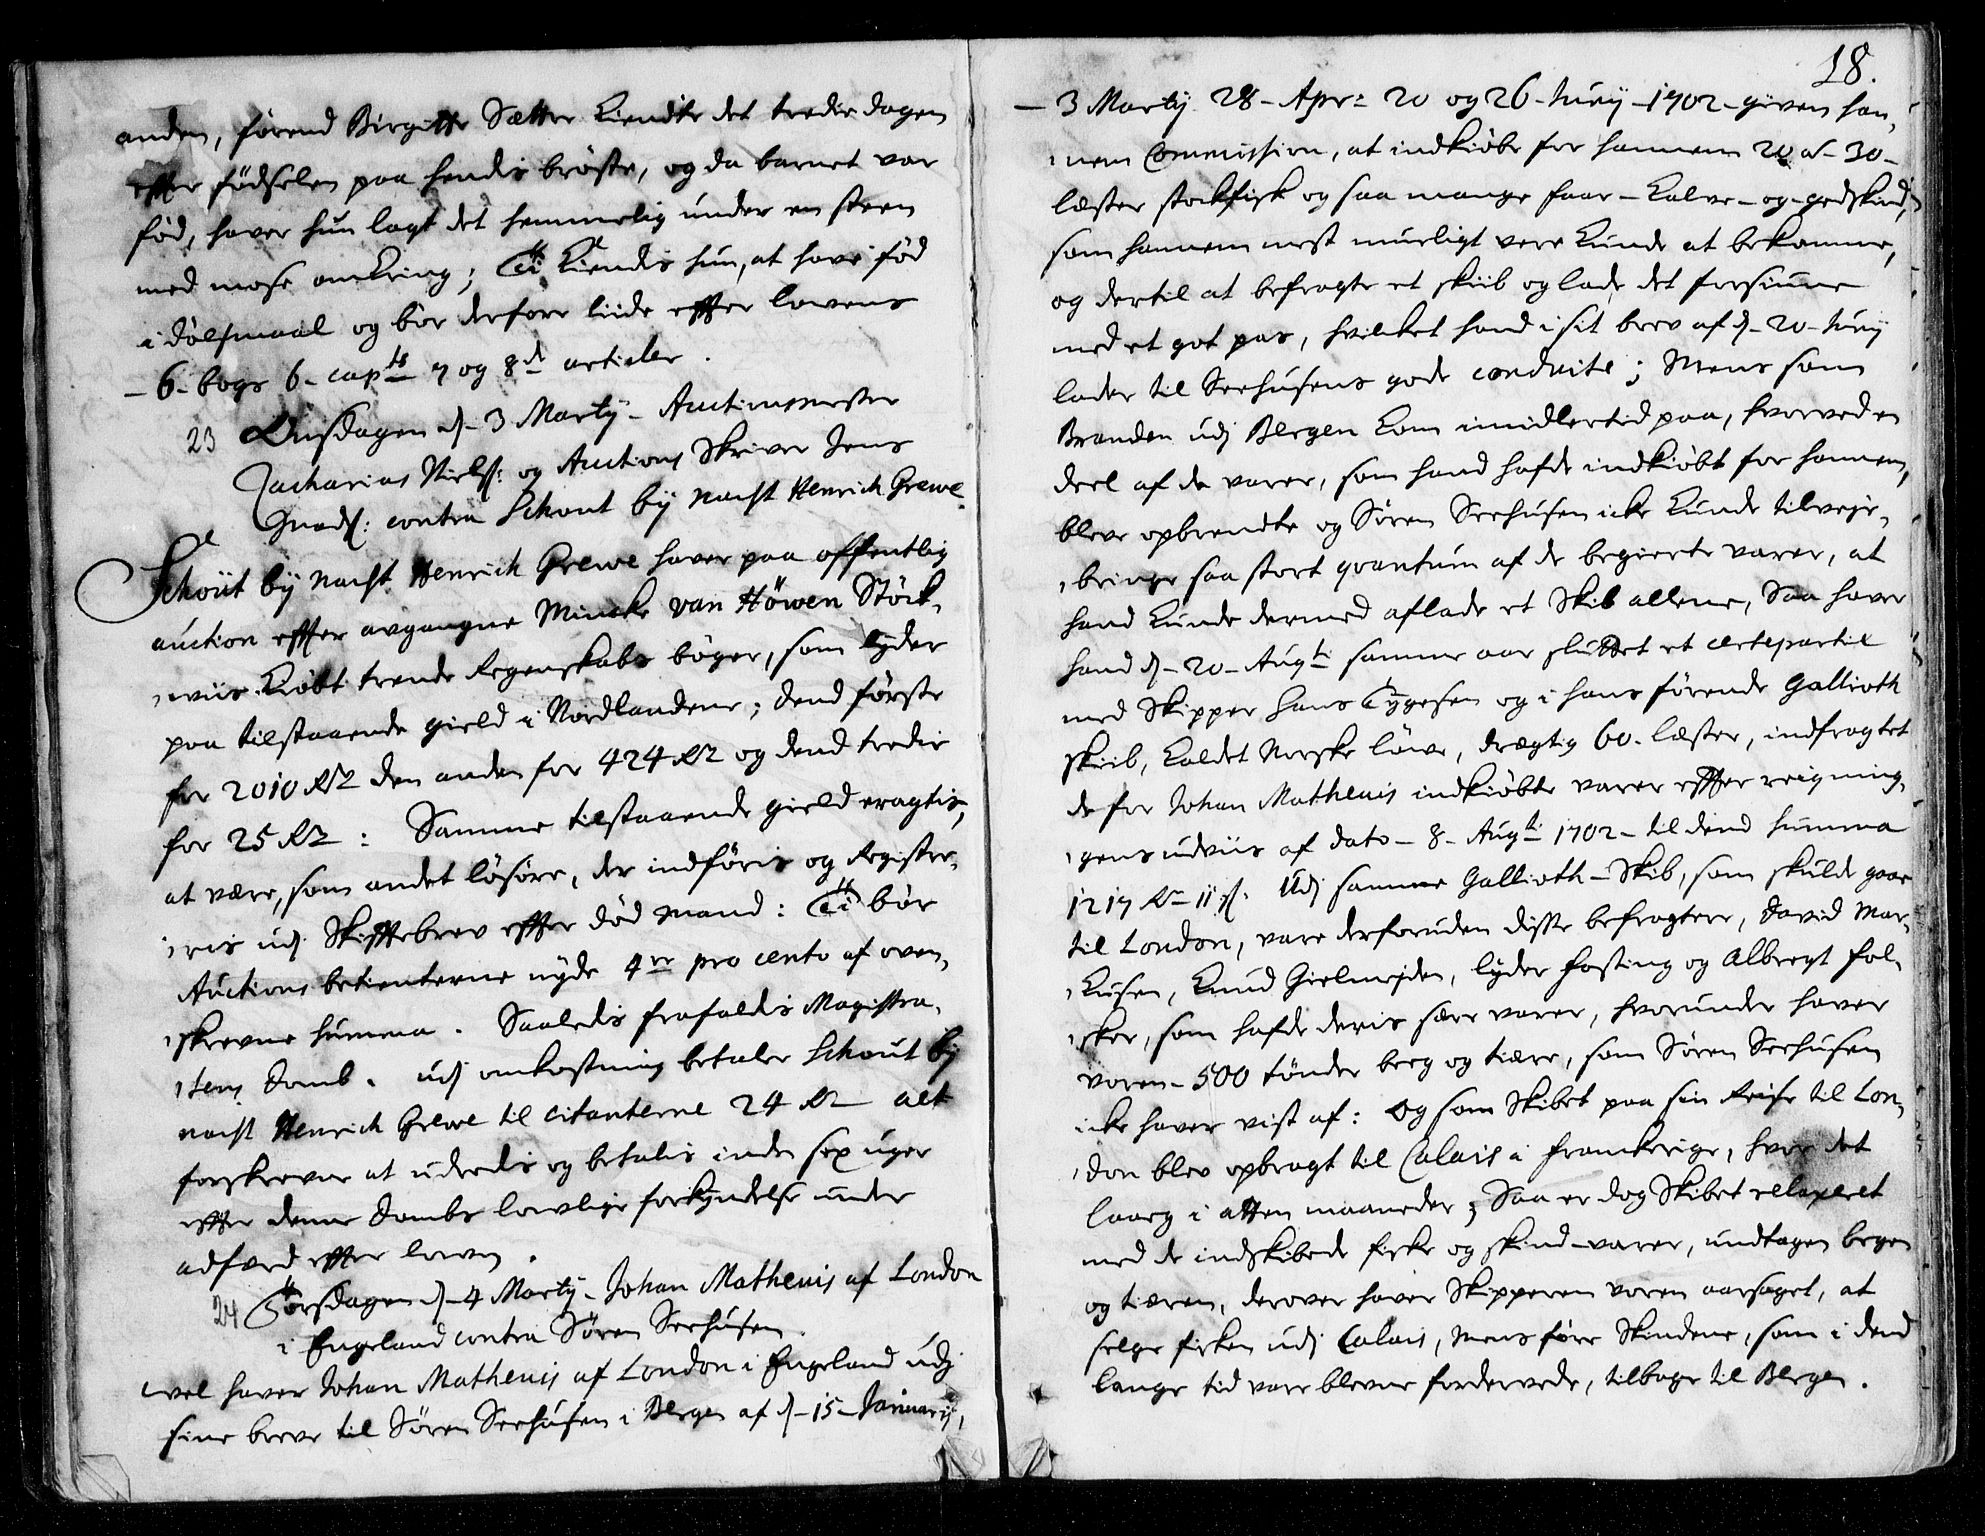 anden, førend Birgitte Sætter kiendte det tredie dagen
effter fødselen paa hendis bröste, og da barnet var
fød, haver hun lagt det hemmelig under en steen
med mose omkring; Thi kiendis hun, at have fød
i dølsmaal og bör derfore liide effter lovens
6. bogs 6. capts 7 og 8de articler.
23 Onsdagen d. 3 Martij. Auctionsmester
Zacharias Niels: og Auctions Skriver Jens
Gnads: contra Schout bÿ nacht Henrich Grewe
Schout bÿ nacht Henrich Grewe haver paa offentlig
auction effter avgangne Mincke van Höwen Stöck-
wiis kiöbt trende Regenskabs böger, som lyder
paa tilstaaende gield i Nordlandene; dend förste
for 2010 Rd den anden for 424 Rd og dend tredie
for 25 Rd: Samme tilstaaende gield eragtis,
at være, som andet lösöre, der indföris og Register-
ris udj Skifftebrev effter död mand: Thi bör
Auctions betienterne nyde 4re pro cento af oven-
skrevne summa. Saaledis frafaldis Magistra-
tens domb. udj omkostning betaler Schout bÿ
nacht Henrich Grewe til citanterne 24 Rd alt
forskrevne at uderedis og betalis inden sex uger
effter denne dombs lowlige forkyndelse under
adfærd effter lowen.
24 Torsdagen d. 4 Martij. Johan Mathenis af London
i Engeland contra Sören Seehusen.
vel haver Johan Mathenis af London i Engeland udj
sine breve til Sören Seehusen i Bergen af d. 15 Januarij,
18.
3 Martij 28 Apr: 20 og 26 Junij 1702 given han-
nem Commission, at indkiöbe for hannem 20 a 30
læster stockfisk og saa mange faar- kalve- og gedskind,
som hannem mest mueligt vere kunde at bekomme,
og dertil at befragte et skiib og lade det forsiune
med et got pas, hvilket hand i sit brev af d. 20 Junij
lader til Seehusens gode conduite; Mens som
Branden udj Bergen kom imidlertid paa, hvorved en
deel af de varer, som hand hafde indkiöbt for hannem,
bleve opbrendte og Sören Seehusen icke kunde tilveje-
bringe saa stort qvantum af de begierte varer, at
hand kunde dermed aflade et Skib allene, Saa haver
hand d. 20 Augti samme aar sluttet et certepartie
med Skipper Hans Tygesen og i hans förende Gallioth
skiib, kaldet Norske löwe, drægtig 60 læster, indfragtet
de for Johan Mathenis indkiöbte varer effter reigning-
gens udviis af dato 8 Augti 1702 til dend summa
1217 Rd 11 s. Udj samme Gallioth-Skib, som skulde gaae
til London, vare derforuden disse befragtere, David Mar-
kusen, Knud Gielmeyden, lyder Fasting og Albregt Fal-
sker, som hafde deris sære varer, hvorunder haver
voren 500 tönder beeg og tiære, som Sören Seehusen
icke haver vist af: Og som Skibet paa sin Reise til Lon-
don blev opbragt til Calais i Franckerige, hvor det
laaeg i atten maaneder; Saa er dog Skibet relaxeret
med de indskibede fiske og skind-varer, undtagen begen
og tiæren, derover haver Skipperen voren aarsaget, at
selge fisken udj Calais, mens före Skindene, som i dend
lange tid vare blevne fordervede, tilbage til Bergen.